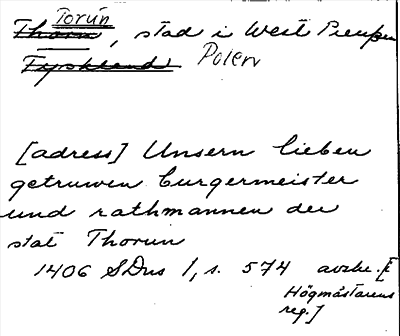 Torún
Thorn, stad i West Preußen
Tyskland Polen
[adress] Unsern lieben
getruwen burgermeister
und rathmannen der
stat Thorun
1406 SDns 1, s. 574 avskr. [
Högmästarens
reg.]